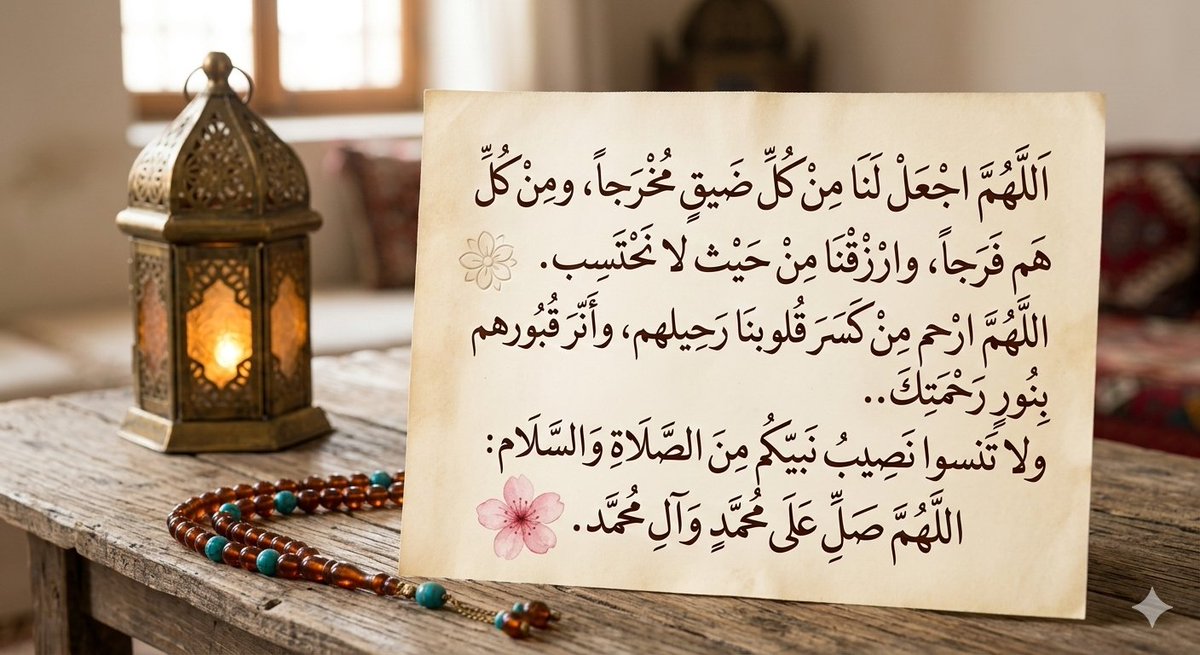 اَللَّهُمَّ اجْعَلْ لَنَا مِنْ كُلِّ ضَيقٍ مُخْرَجاً، ومِنْ كُلِّ
هَم فَرَجاً، وارْزُقْنَا مِنْ حَيْث لا نَحْتَسِب.
اللَّهُمَّ ارْحم مِنْ كَسَرَ قُلوبنَا رَحِيلهم، وأَنّر قُبُورهم
بِنُورٍ رَحْمَتِكَ..
ولا تَنسوا نَصِيبُ نَبيّكُم مِنَ الصَّلَاةِ وَالسَّلَام:
اللَّهُمَّ صَلِّ عَلَى مُحمَّدٍ وَآلِ مُحمَّد.